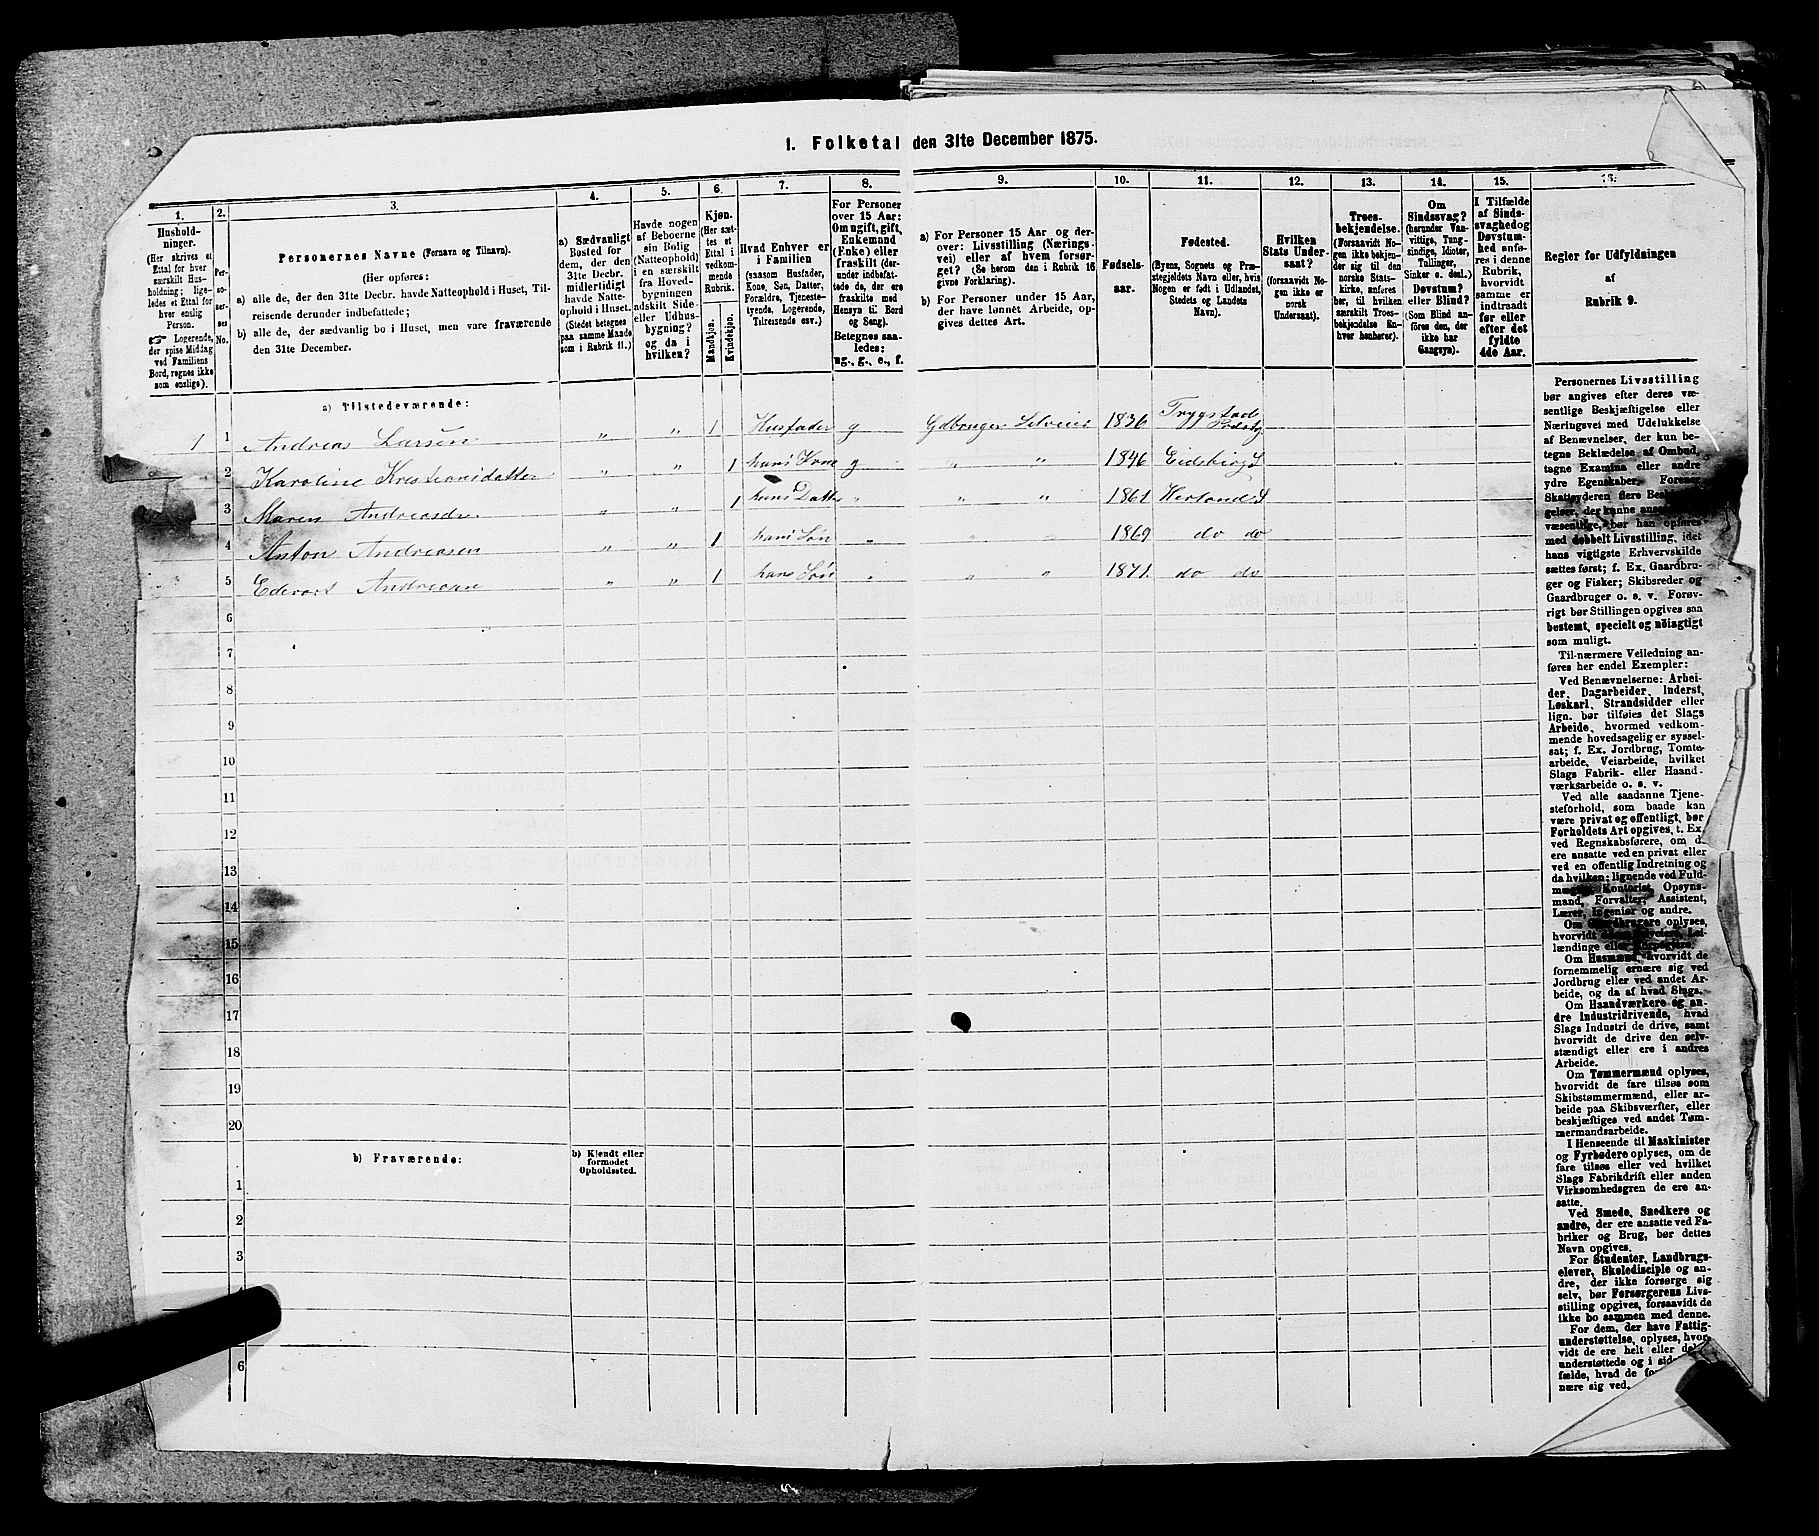 1. Folketal den 31te December 1875.
1. 2. 3. 4. 5. 6. 7. 8. 9. 10. 11. 12. 13. 14. 15. 16.
Hushold-
ninger.
(Her skrives et
Ettal for hver
særskilt Hus-
holdning; lige-
ledes et Ettal for
hver enslig
Person.
☞ Logerende,
der spise Middag
ved Familiens
Bord, regnes ikke
som enslige).
Per-
so-
ner-
nes
No.
Personernes Navne (Fornavn og Tilnavn).
(Her opføres:
a) alle de, der den 31te Decbr. havde Natteophold i Huset, Til-
reisende derunder indbefattede;
b) alle de, der sædvanlig bo i Huset, men vare fraværende
den 31te December.
a) Sædvanligt
Bosted for
dem, der den
31te Decbr.
midlertidigt
havde Natte-
ophold i Huset.
(Stedet betegnes
paa samme Maade
som i Rubrik 11.)
Havde nogen
af Beboerne
sin Bolig
(Natteophold)
i en særskilt
fra Hoved-
bygningen
adskilt Side-
eller Udhus-
bygning?
og da i
hvilken?
Kjøn.
(Her sæt-
tes et
Ettal i
vedkom-
mende
Rubrik.
Mandkjøn.
Kvindekjøn.
Hvad Enhver er
i Familien
(saasom Husfader,
Kone, Søn, Datter,
Forældre, Tjeneste-
tyende, Logerende,
Tilreisende osv.)
For Personer
over 15 Aar:
Om ugift, gift,
Enkemand
(Enke) eller
fraskilt (der-
under indbefat-
tede de, der ere
fraskilte med
Hensyn til Bord
og Seng).
Betegnes saa-
ledes:
ug., g., e., f.
a) For Personer 15 Aar og der-
over: Livsstilling (Nærings-
vei) eller af hvem forsør-
get? (Se herom den i Rubrik 16
givne Forklaring).
b) For Personer under 15 Aar,
der have lønnet Arbeide, op-
gives dettes Art.
Fødsels-
aar.
Fødested.
(Byens, Sognets og Præ-
stegjeldets Navn eller, hvis
Nogen er født i Udlandet,
Stedets og Landets
Navn).
Hvilken
Stats Under-
saat?
(forsaavidt No-
gen ikke er
norsk
Undersaat).
Troes-
bekjendelse.
(Forsaavidt No-
gen ikke bekjen-
der sig til den
norske Stats-
kirke, anføres
her, til hvilken
særskilt Troes-
bekjendelse En-
hver henhører).
Om
Sindssvag?
(herunder Van-
vittige, Tung-
sindige, Idioter,
Tullinger,
Sinker o. desl.)
Døvstum?
eller Blind?
(Som Blind an-
føres den, der
ikke har
Gangsyn).
I Tilfælde
af Sinds-
svaghed og
Døvstum-
hed anfø-
res i denne
Rubrik,
hvorvidt
samme er
indtraadt
før eller
efter det
fyldte
4de Aar.
Regler for Udfyldningen
af
Rubrik 9.
a) Tilstedeværende:
1 1 Andreas Larsen " " 1 Husfader g Gdbruger Selveier 1836 Trygstad
2 Karoline " " 1 hans Kone g " " 1846 Eidsberg
3 Maren " " 1 hans Datter " " " 1861
4 Anton Andreasen " " 1 hans Søn " " " 1869 do do
5 Andreasen " " 1 hans Søn " " " 1871 do do
6
7
8
9
10
11
12
13
14
15
16
17
18
19
20
b) Fraværende:
b) Kjendt eller
formodet
Opholdssted.
1
2
3
6
Personernes Livsstilling
bør angives efter deres væ-
sentlige Beskjæftigelse eller
Næringsvei med Udelukkelse
af Benævnelser, der kun be-
tegne Beklædelse af Ombud,
tagne Examina eller andre
ydre Egenskaber. Forener
Skatteyderen flere
der kunne
væsentlige, bør han opføres
med dobbelt Livsstilling, idet
hans vigtigste Erhvervskilde
sættes først; f. Ex. Gaardbru-
ger og Fisker; Skibsreder og
Gaardbruger o. s. v. Forøv-
rigt bør Stillingen opgives saa
bestemt, specielt og nøiagtigt
som muligt.
Til nærmere Veiledning an-
føres her endel Exempler:
Ved Benævnelserne: Arbei-
der, Dagarbeider, Inderst,
Løskarl, Strandsidder eller
lign. bør tilføies det Slags
Arbeide, hvormed vedkom-
mende hovedsagelig er syssel-
sat; f. Ex. Jordbrug, Tomte-
arbeide, Veiarbeide, hvilket
Slags Fabrik- eller Haand-
værksarbeide o. s. v.
Ved alle saadanne Tjene-
steforhold, som baade kan
være privat og offentligt, bør
Forholdets Art opgives, t. Ex.
ved Regnskabsførere, om de
ere ansatte ved en privat eller
ved en offentlig Indretning og
da hvilken; lignende ved Fuld-
mægtig, Kontorist, Opsyns-
mand, Forvalter, Assistent,
Lærer, Ingeniør og andre.
Om Gaardbrugere oplyses,
hvorvidt Lei-
lændinge eller
Om Husmænd, hvorvidt de
fornemmelig ernære sig ved
Jordbrug eller ved andet Ar-
beide, og da af hvad Slags.
Om Haandværkere og an-
dre Industridrivende, hvad
Slags Industri de drive, samt
hvorvidt de drive den selv-
stændigt eller ere i andres
Arbeide.
Om Tømmermænd oplyses,
hvorvidt de fare tilsøs som
Skibstømmermænd, eller ar-
beide paa Skibsværfter, eller
beskjæftiges ved andet Tøm-
mermandsarbeide.
I Henseende til Maskinister
og Fyrbødere oplyses, om de
fare tilsøs eller ved hvilket
Slags Fabrikdrift eller anden
Virksomhedsgren de ere an-
satte.
Ved Smede, Snedkere og
andre, der ere ansatte ved Fa-
briker og Brug, bør dettes
Navn opgives.
For Studenter, Landbrugs-
elever, Skoledisciple og an-
dre, der ikke forsørge sig
selv, bør Forsørgerens Livs-
stilling opgives, forsaavidt de
ikke bo sammen med denne.
For dem, der have Fattig-
understøttelse, oplyses, hvor-
vidt de ere helt eller
understøttede og i
fælde, hvad de
nære sig ved.